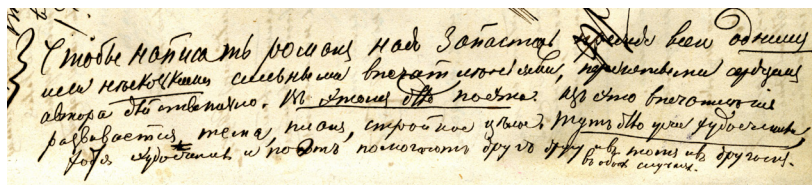 Чтобы написать романъ, надо запастись прежде всего однимъ
или нѣсколькими сильными впечатлѣніями, пережитыми сердцемъ
автора дѣйствительно. Въ этомъ дѣло поэта. Изъ этого впечатлѣнія
развивается тема, планъ, стройное цѣлое. Тутъ дѣло уже художника,
хотя художникъ и поэтъ помогаютъ другъ другу и въ томъ и въ другомъ
въ обоихъ случаяхъ.